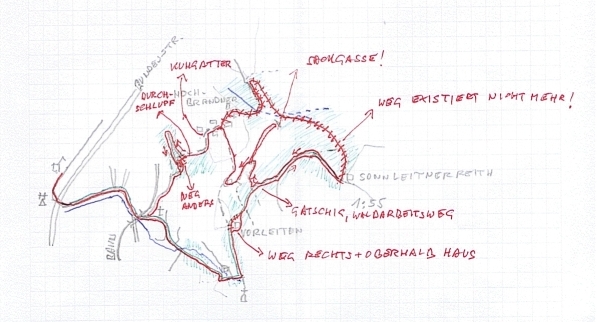 BUNDESSTR.
KUHGATTER
SACKGASSE!
DURCH-
SCHLUPF
HOCH-
BRANDNER
WEG EXISTIERT NICHT MEHR!
SONNLEITNERREITH
1:55
WEG
ANDERS
GATSCHIG, WALDARBEITSWEG
VORLEITEN
WEG RECHTS + OBERHALB HAUS